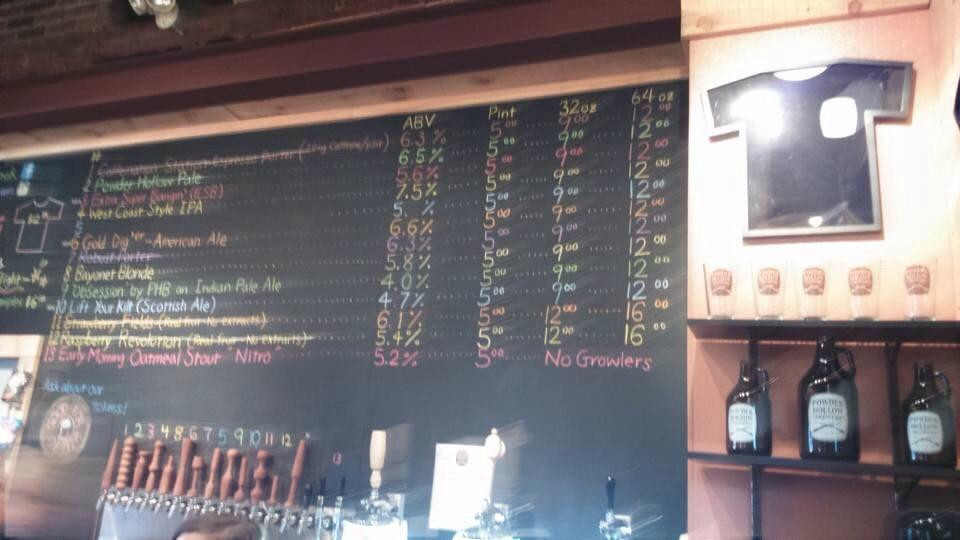 ABV Pint 32oz 64oz
1 Espresso Porter 6.3% 5.00 9.00 12.00
2 Powder Hollow Pale 6.5% 5.00 9.00 12.00
3 Extra Super Bangin' (ESB) 5.6% 5.00 9.00 12.00
4 West Coast Style IPA 7.5% 5.00 9.00 12.00
5 5. % 5.00 9.00 12.00
6 Gold Dig'er - American Ale 6.6% 5.00 9.00 12.00
7 Robust Porter 6.3% 5.00 9.00 12.00
8 Bayonet Blonde 5.8% 5.00 9.00 12.00
9 Obsession by PHB an Indian Pale Ale 4.0% 5.00 9.00 12.00
10 Lift Your Kilt (Scottish Ale) 4.7% 5.00 9.00 12.00
11 Strawberry Fields (Real fruit No extracts) 6.1% 5.00 12.00 16.00
12 Raspberry Revolution (Real fruit - No extracts) 5.4% 5.00 12.00 16.00
13 Early Morning Oatmeal Stout "Nitro" 5.2% 5.00 No Growlers
Ask about our
1 2 3 4 8 6 7 5 9 10 11 12
13
POWDER HOLLOW BREWERY
POWDER HOLLOW BREWERY
POWDER HOLLOW